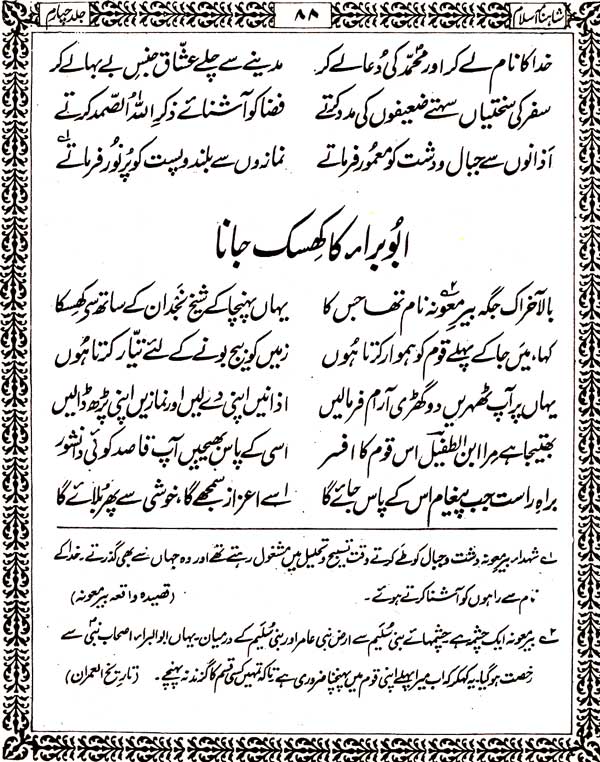 شاہنامہ اسلام ۸۸ جلد چہارم
خدا کا نام لے کر اور محمدؐ کی دُعا لے کر مدینے سے چلے عشّاق جنسِ بے بہا لے کر
سفر کی سختیاں سہتے ضعیفوں کی مدد کرتے فضا کو آشنائے ذکرِ اللہُ الصّمد کرتے
اذانوں سے جبال و دشت کو معمُور فرماتے نمازوں سے بلند و پست کو پُرنُور فرماتے ۱؎
ابُو براء کا کھِسک جانا
بالآخر اک جگہ بیرِ معونہ ۲؎ نام تھا جس کا یہاں پہنچا کے شیخِ نجد ان کے ساتھ سے کھسکا
کہا، میں جا کے پہلے قوم کو ہموار کرتا ہُوں زمیں کو بیج بونے کے لئے تیّار کرتا ہُوں
یہاں پر آپ ٹھہریں دو گھڑی آرام فرما لیں اذانیں اپنی دے لیں اور نمازیں اپنی پڑھ ڈالیں
بھتیجا ہے مرا ابن الطفیل اس قوم کا افسر اسی کے پاس بھیجیں آپ قاصد کوئی دانشور
براہِ راست جب پیغام اس کے پاس جائے گا اسے اعزاز سمجھے گا، خوشی سے پھر بُلائے گا
۱؎ شہداء بیرِ معونہ دشت و جبال کو طے کرتے وقت تسبیح و تحلیل میں مشغول رہتے تھے اور وہ جہاں سے بھی گذرتے۔ خدا کے
نام سے راہوں کو آشنا کرتے ہوئے۔ (قصیدہ واقعہ بیرِ معونہ)
۲؎ بیرِ معونہ ایک چشمہ ہے چشمہائے بنی سُلیم سے ارضِ بنی عامر اور بنی سُلیم کے درمیان۔ یہاں ابو البراء اصحابِ نبیؐ سے
رخصت ہو گیا۔ یہ کہکر کہ اب میرا پہلے اپنی قوم میں پہنچنا ضروری ہے تاکہ تمہیں کسی قسم کا گزند نہ پہنچے۔ (تاریخ العمران)